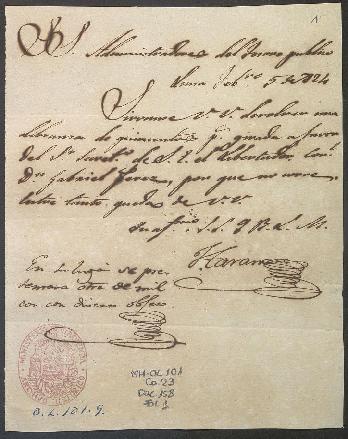 1
S. S. Administradores del Tesoro publico
Lima Feb.ro 5 de 1824
Sirvanse V. V. devolver una
libranza de quinientos p.s girada a favor
del S.or Secret.o de S. E. el Libertador, Cor.l
D.n Gabriel Perez, por que no corre,
entre tanto queda de V. V.
su af.mo S. S. Q. B. L. M.
En su lugar se pre-
sentara otra de mil
con con diverso objeto
MH-OL 101
Ca. 23
Doc. 158
Fol. 1
O.L. 101-9.